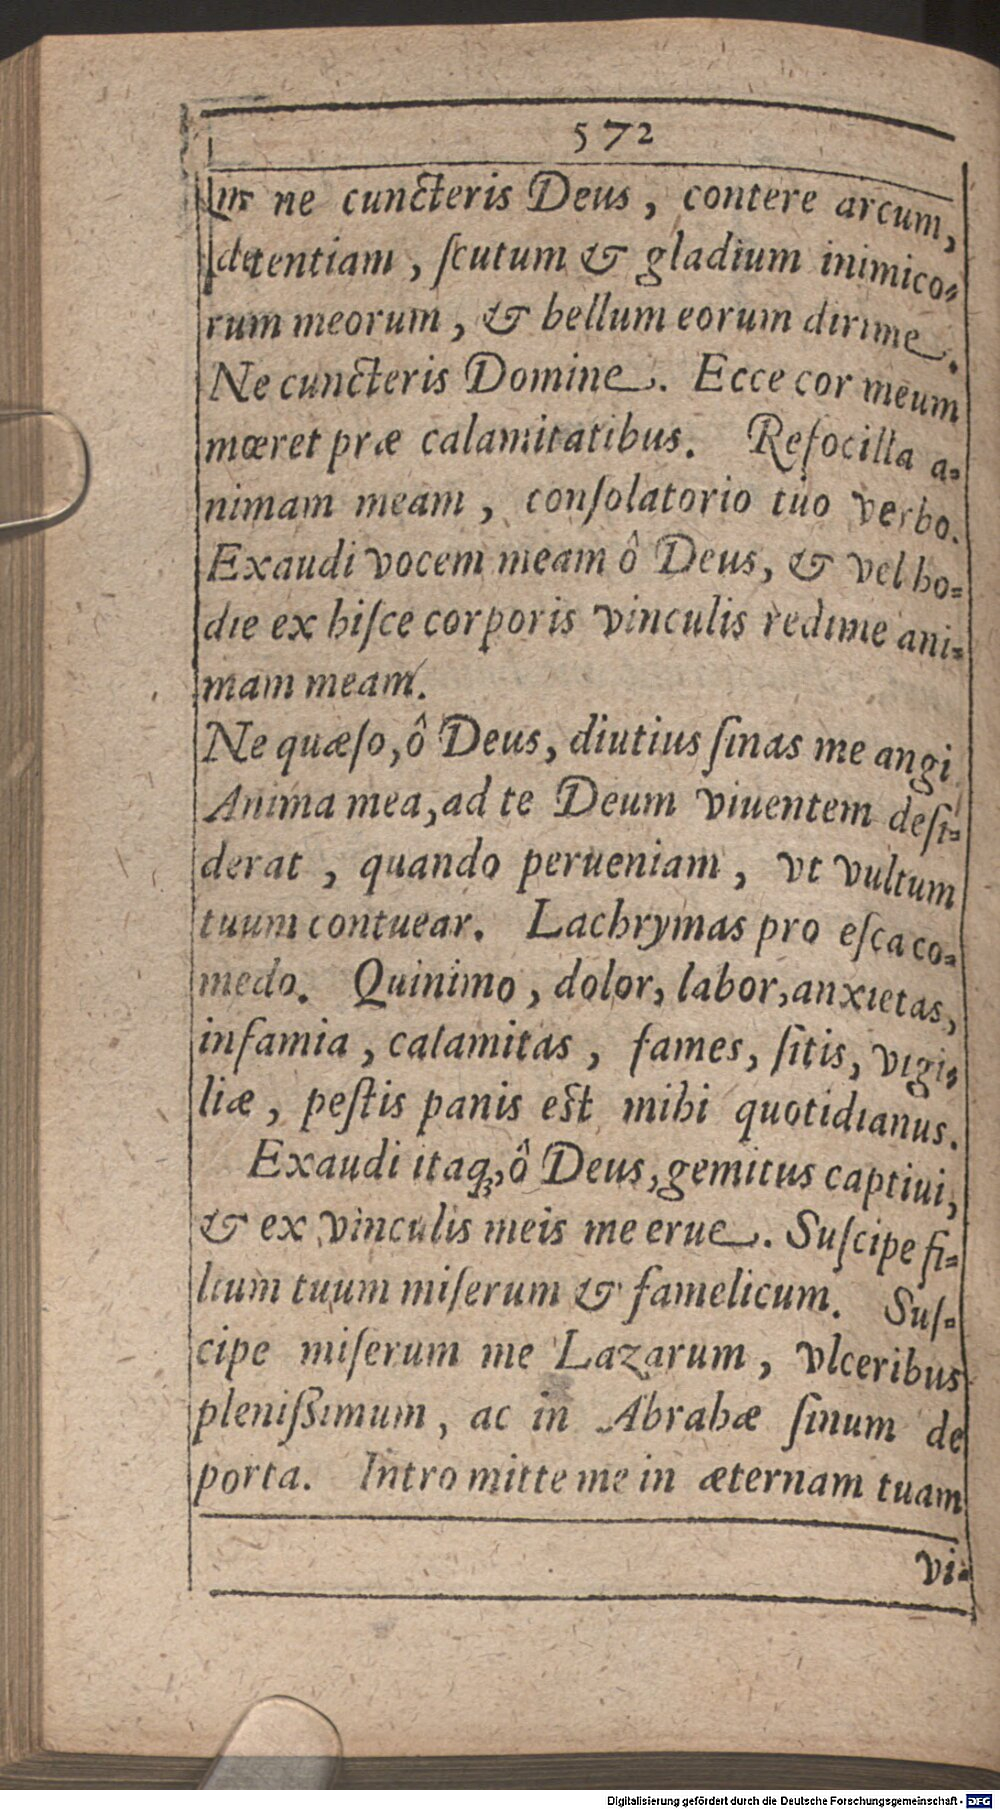 572
ne cuncteris Deus, contere arcum,
potentiam, ſcutum & gladium inimico-
rum meorum, & bellum eorum dirime.
Ne cuncteris Domine. Ecce cor meum
mœret præ calamitatibus. Refocilla a-
nimam meam, conſolatorio tuo verbo.
Exaudi vocem meam ô Deus, & vel ho-
die ex hiſce corporis vinculis redime ani-
mam meam.
Ne quæſo, ô Deus, diutius ſinas me angi
Anima mea, ad te Deum viuentem deſi-
derat, quando perueniam, vt vultum
tuum contuear. Lachrymas pro eſca co-
medo. Quinimo, dolor, labor, anxietas,
infamia, calamitas, fames, ſitis, vigi-
liæ, peſtis panis est mihi quotidianus.
Exaudi itaq;, ô Deus, gemitus captiui,
& ex vinculis meis me erue. Suſcipe fi-
lium tuum miſerum & famelicum. Suſ-
cipe miſerum me Lazarum, vlceribus
pleniſſimum, ac in Abrahæ ſinum de
porta. Intro mitte me in æternam tuam
vi-
Digitalisierung gefördert durch die Deutsche Forschungsgemeinschaft - DFG